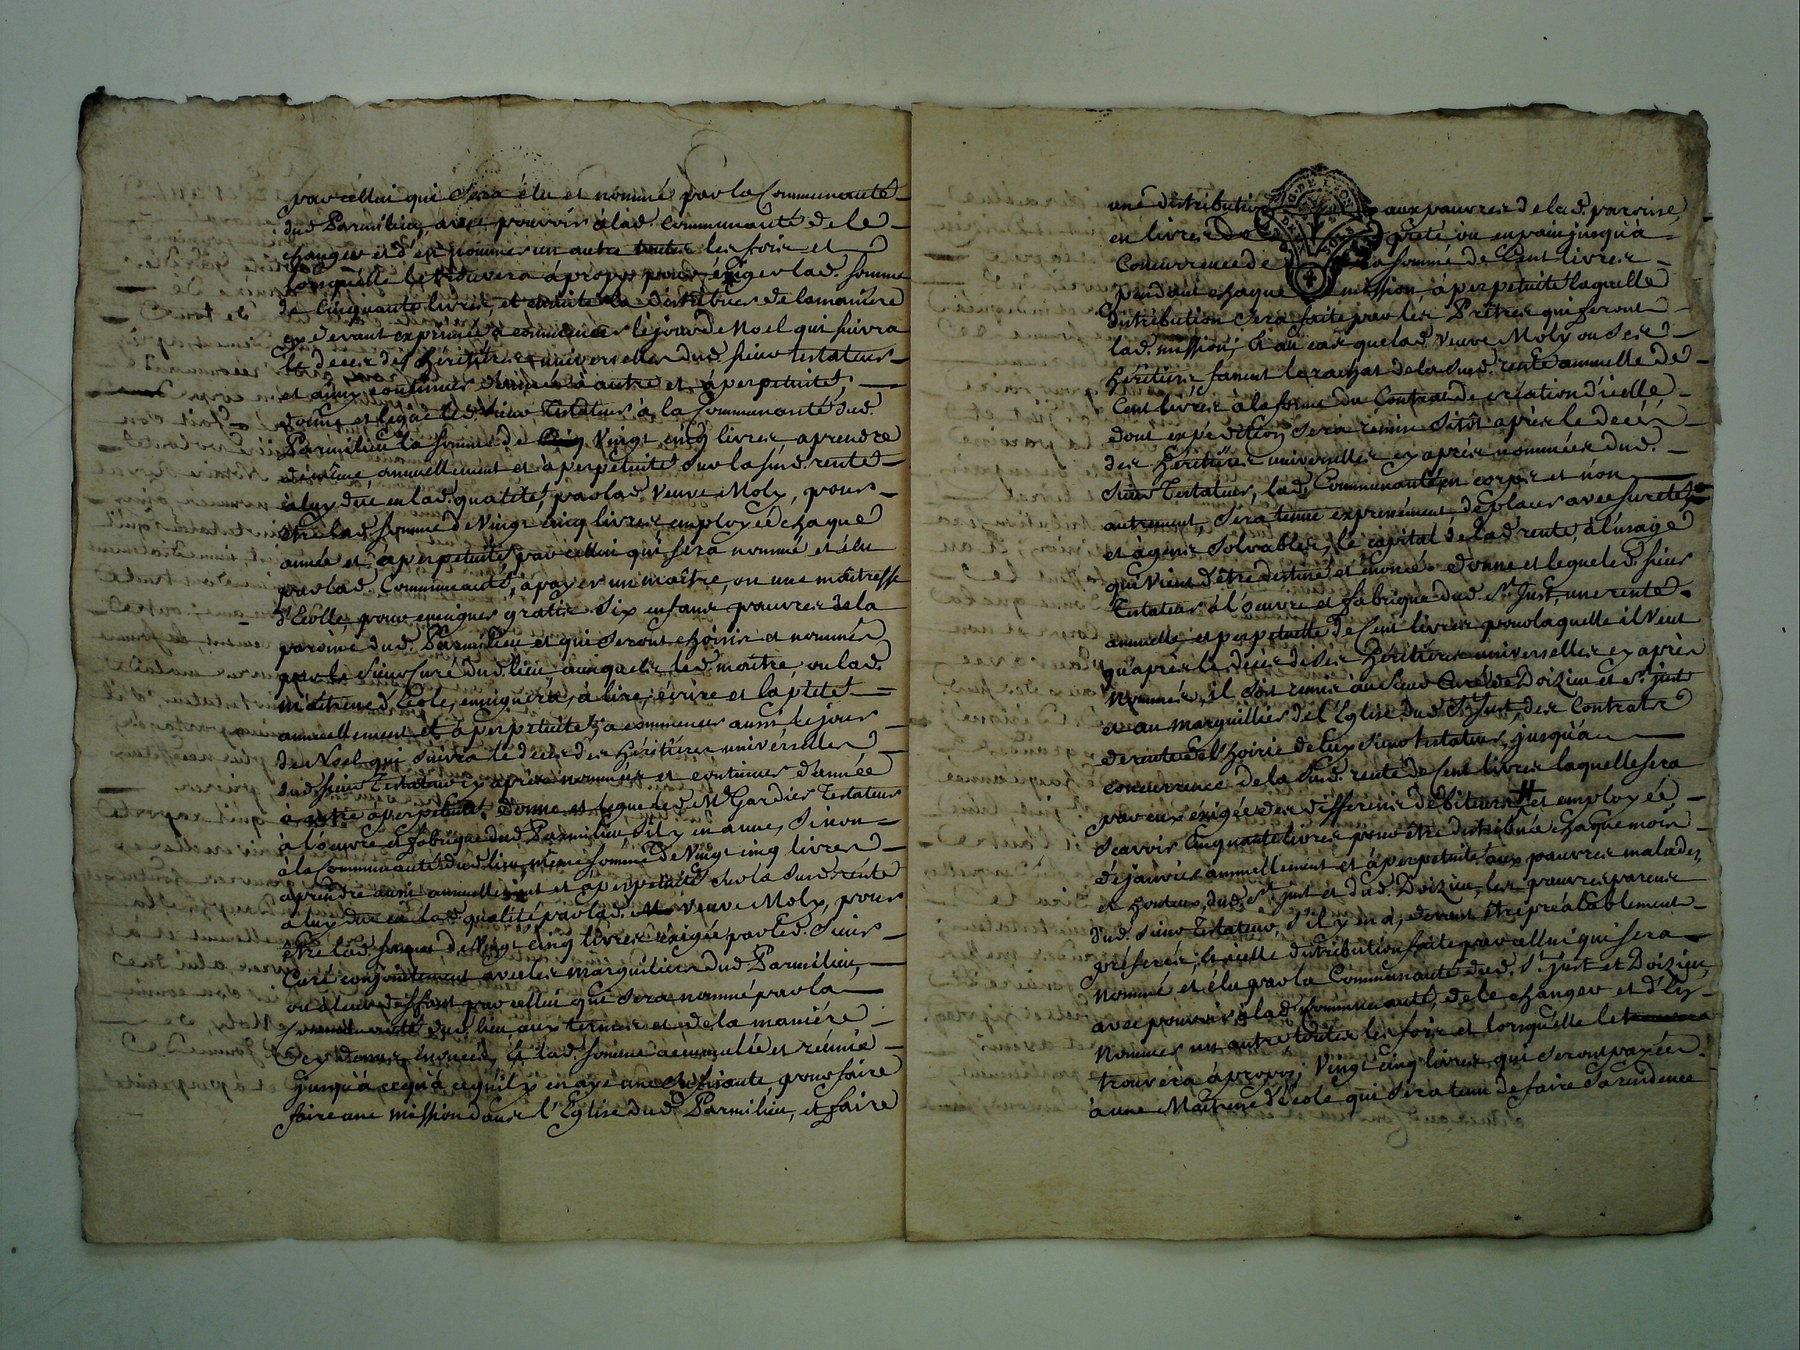 par cellui qui sera élu et nommé par la Communauté
dud. Parmilieu, avec pouvoir à lad. Communauté de le
changer et d'en nommer un autre toutes les fois et
lorsquelle le trouvera apropos, pour éxiger lad. somme
de Cinquante livres, et ensuite la distribuer de la maniere
cy devant exprimée a commencer le jour de Noel qui suivra
le deces des héritieres universelles dud. sieur testateur
et ainsy continuer d'année à autre et à perpetuité,
donne et legue led. sieur Testateur à la Communauté dud.
Parmilieu la somme de Vingt cinq livres aprendre
de même, annuellement et à perpétuité sur la sud. rente
à luy due en lad. qualité, par lad. Veuve Moly, pour
etre lad. somme de Vingt cinq livres employée chaque
année et à perpetuité, par cellui qui sera nommé et élu
par lad. Communauté, à payer un maître, ou une maîtresse
d'Ecolle, pour enseigner gratis six enfans pauvres de la
paroisse dud. Parmilieu et qui seront choisis et nommés
par le sieur Curé dud. lieu, ausquels led. maitre ou lad.
maitresse d'Ecole, enseignera, à lire, écrire et la piété
annuellement et à perpetuité, a commencer aussi le jour
de Noel qui suivra le deces des Héritieres universelles
dud. sieur Testateur cy après nommées et continuer d'année
à autre à perpetuité. Donne et legue led. Mr. Gardier Testateur
à l'oeuvre et fabrique dud. Parmilieu s'il y en a une, sinon
à la Communauté dud. lieu, même somme de Vingt cinq livres
aprendre aussi annuellement et à perpetuité sur la sud. rente
à luy due en lad. qualité par lad. Veuve Moly, pour
être lad. somme de Vingt cinq livres éxigée par led. Sieur
Curé conjointement avec les marguilliers dud. Parmilieu,
ou à leur deffaut par cellui qui sera nommé par la
Communauté dud. lieu aux termes et de la maniére
cy dessus énoncée, et lad. somme accumulée et réunie
jusqu'à ce qu'à ce qu'il y en aye une suffisante pour faire
faire une mission dans l'Eglise dud. Parmilieu, et faire
une distribution aux pauvres de lad. paroisse,
en livres de ou en pain jusqu'à
Concurrence de la somme de Cent livres
pendant chaque mission à perpetuité laquelle
distribution sera faite par les Prêtres qui feront
lad. mission; Et au cas que lad. Veuve Moly ou ses
héritiers fassent le rachat de la sud. rente annuelle de
Cent livres à la forme du Contrat de création d'icelle,
dont expédition sera remise sitôt après le decès
des Héritieres universelles cy après nommées dud.
sieur Testateur, lad. Communauté en corps et non
autrement, sera tenue expressément de placer avec sureté
et à gens solvables, le capital de lad. rente, à l'usage
qui vient d'être destiné et énoncé. Donne et legue led. sieur
Testateur à l'oeuvre et fabrique dud. St. Just, une rente
annuelle et perpetuelle de Cent livres pour laquelle il veut
qu'après le décès de ses Héritieres universelles cy après
nommées, il soit remis au sieur Curé de Doizieu et St. just
et au marguillier de l'Eglise dud. St. Just, des Contrats
de rente de l'hoirie de luy sieur testateur, jusqu'à
concurrence de la sud. rente de Cent livres laquelle sera
par eux éxigée des differens débiteurs et employée
scavoir Cinquante livres pour être distribuée chaque mois
déjanvier annuellement et à perpetuité aux pauvres malades
et honteux, dud. St. just et dud. Doizieu, les pauvres parens
dud. sieur Testateur, s'il y en a, devant être préalablement
préférés, et icelle distribution faite par cellui qui sera
nommé et élu par la Communauté dud. St. just et Doizieu,
avec pouvoir à lad. Communauté, de le changer et d'en
nommer un autre toutes les fois et lorsqu'elle le
trouvera à propos; Vingt cinq livres qui seront payées
à une Maitresse d'école qui sera tenue de faire sa residence